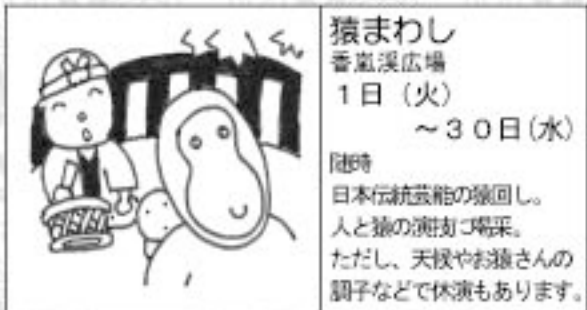 猿まわし
香嵐渓広場
1日（火）
～30日(水)
随時
日本伝統芸能の猿回し。
人と猿の演技に喝采。
ただし、天候やお猿さんの
調子などで休演もあります。